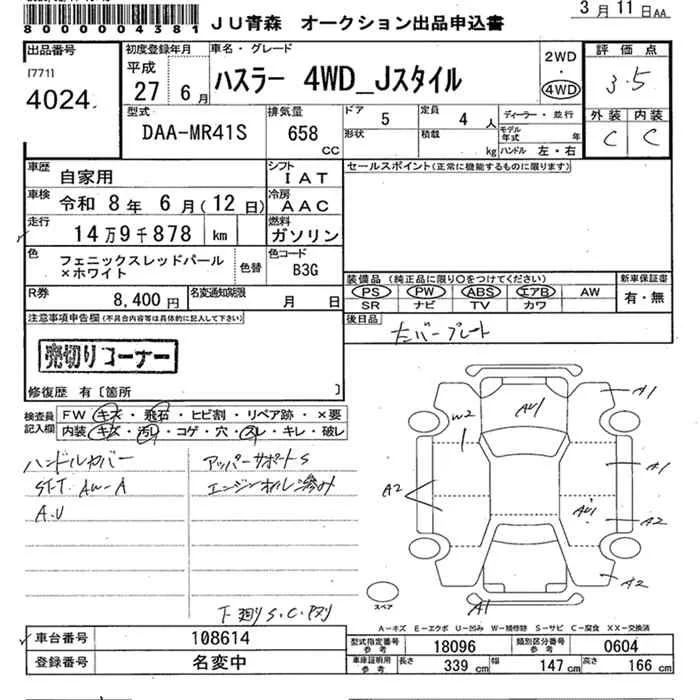 80000004381
JU青森 オークション出品申込書
3月11日AA
出品番号
[771]
4024
初度登録年月
平成
27 6月
車名・グレード
ハスラー 4WD_Jスタイル
2WD
・
4WD
評価点
3.5
外装 内装
C C
型式
DAA-MR41S
排気量
658
CC
ドア 5
形状
定員 4 人
積載 kg
ディーラー・並行
モデル年式 年
ハンドル 左・右
車歴
自家用
シフト
IAT
車検
令和 8年 6月(12日)
冷房
AAC
走行
14万9千878 km
燃料
ガソリン
色
フェニックスレッドパール
×ホワイト
色替
色コード
B3G
R券
8,400円
名変通知期限
月 日
セールスポイント(正常に機能するものに限ります)
装備品 (純正品に限り○をつけてください)
PS PW ABS エアB AW
SR ナビ TV カワ
新車保証書
有・無
後日品
ナンバープレート
注意事項申告欄(不具合内容等は具体的に記入して下さい)
売切りコーナー
修復歴 有[箇所 ]
検査員
記入欄
FW キズ・飛石・ヒビ割・リペア跡・×要
内装 キズ・汚レ・コゲ・穴・スレ・キレ・破レ
ハンドルカバー
アッパーサポートS
ST.T AW-A
エンジンオイル滲み
A.U
下廻りS.C.
AU1
A1
W2
A1
A2
AU1
A2
A2
A1
スペア
A-キズ E-エクボ U-凹み W-補修跡 S-サビ C-腐食 XX-交換済
車台番号
108614
登録番号
名変中
型式指定番号
参考
18096
類別区分番号
参考
0604
車庫証明用
参考
長さ 339 cm
幅 147 cm
高さ 166 cm